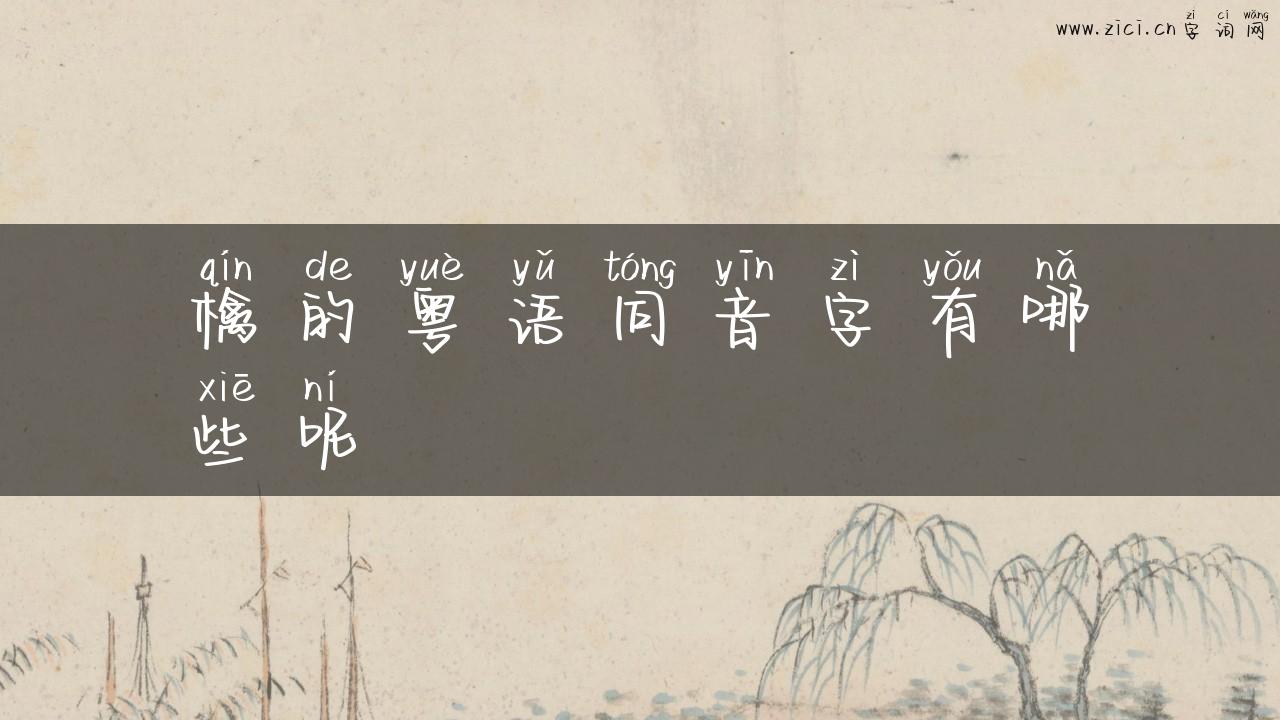 zì cí wǎng
www.zici.cn 字词网
qín de yuè yǔ tóng yīn zì yǒu nǎ
檎的粤语同音字有哪
xiē ní
些呢